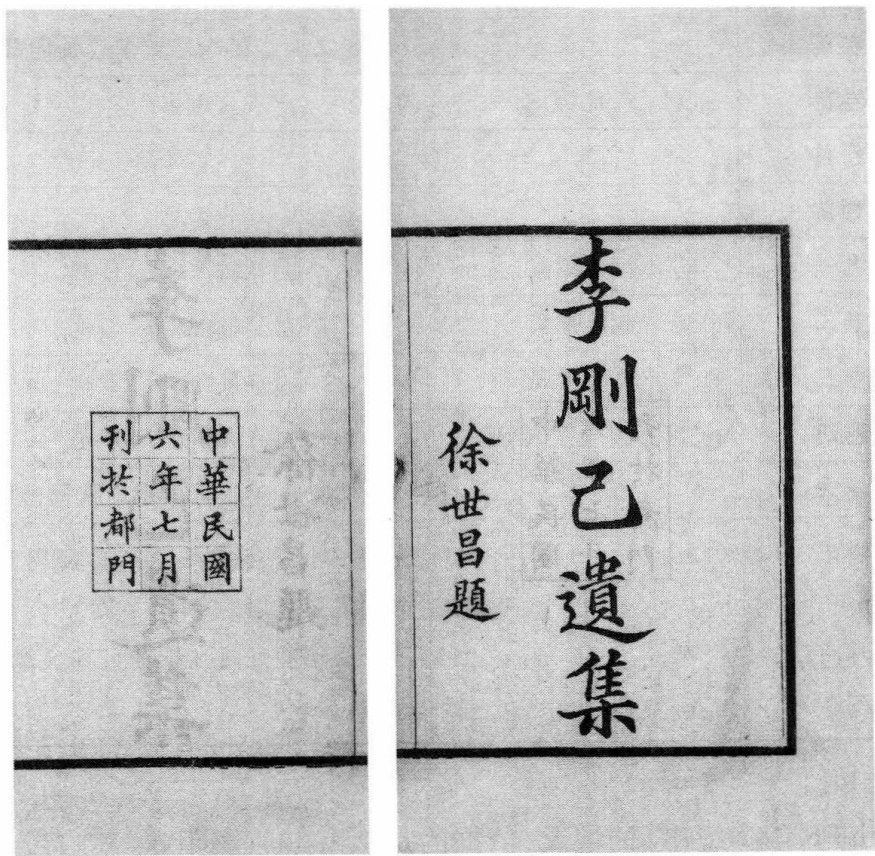 李剛己遺集
徐世昌題
中華民國
六年七月
刊於都門